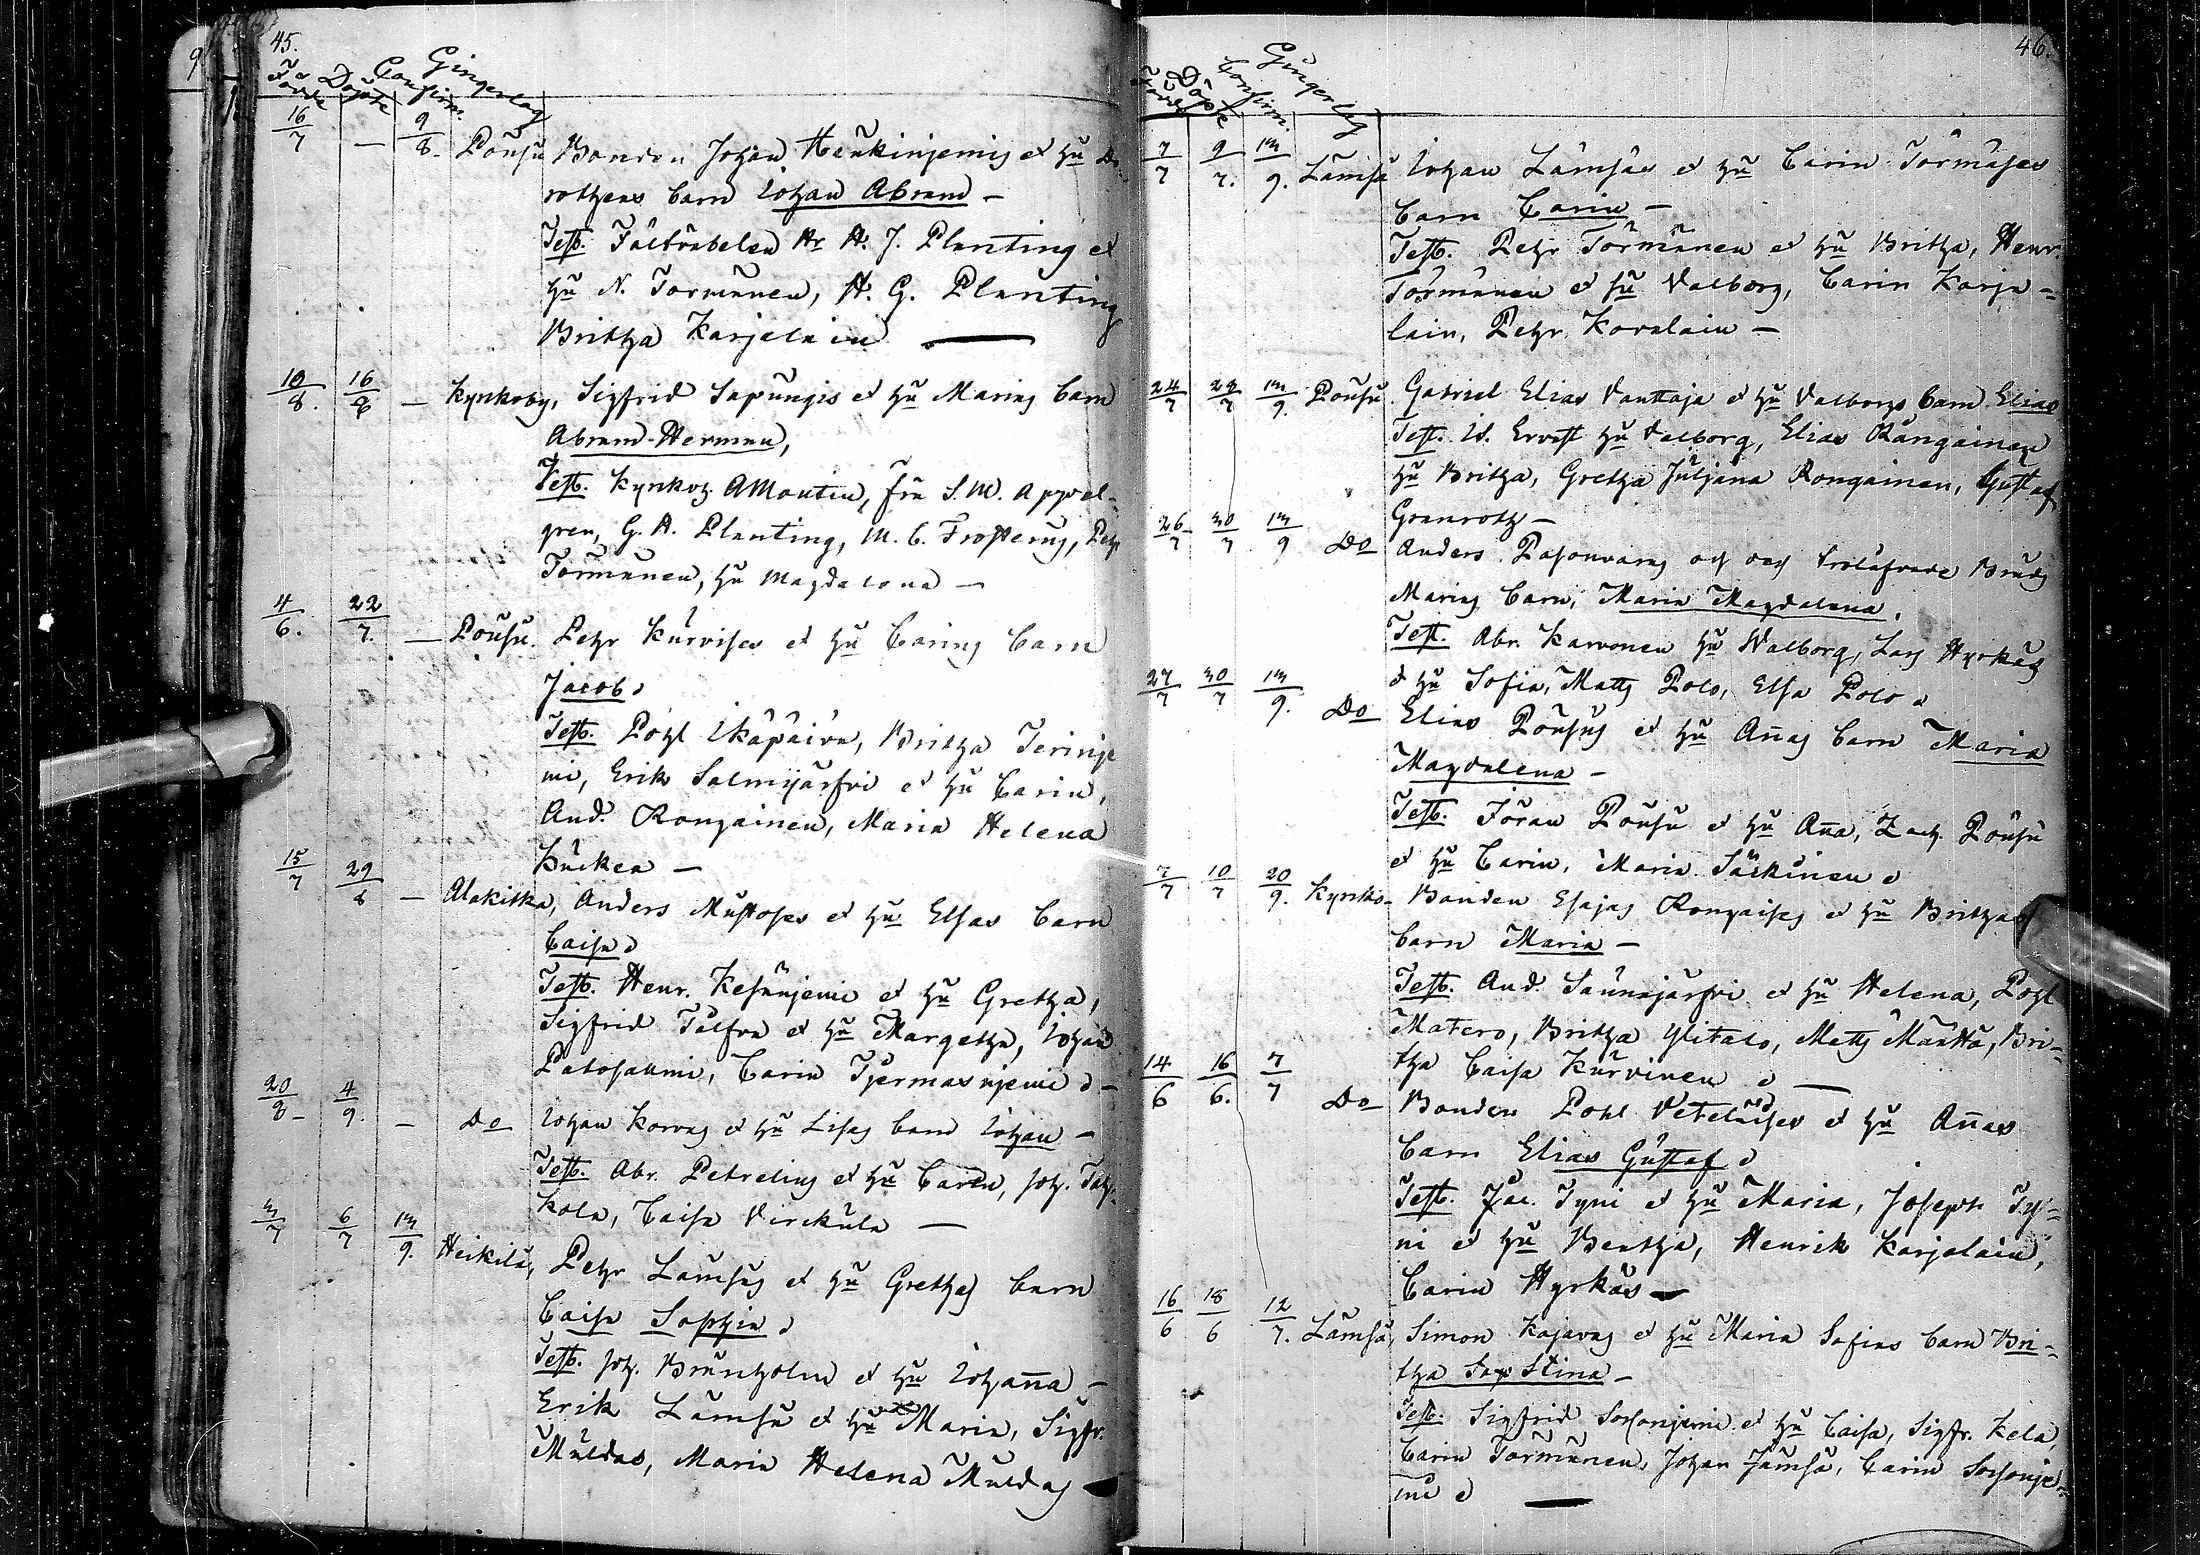 45.
Födde Döpte Confirm. Gingerlag
16/7 — 9/8. Pousu Bonden Johan Haukinjemis et hu Do
rotheas barn Johan Abram —
Test. Hr H. J. Planting et
hu N. Tormänen, H. G. Planting
Britha Karjelain —
10/8. 16/8 — Kyrkoby, Sigfrid Sapungis et hu Marias barn
Abram Herman,
Test. Kyrkoh. A Montin, fru S. M. Appel-
gren, G. H. Planting, M. C. Frosterus, Pehr
Törmänen, hu Magdalena —
4/6. 22/7. — Pousu. Pehr Kurvises et hu Carins barn
Jacob
Test. Påhl Ikäpäivä, Britha Jerinje
mi, Erik Salmijärfvi et hu Carin,
And. Rongainen, Maria Helena
15/7 29/8 — Alakitka, Anders Mustoses et hu Elsas barn
Caisa
Test. Henr. Kesänjemi et hu Gretha,
Sigfrid Tålfva et hu Margetha, Johan
Patosalmi, Carin Tjermasnjemi —
20/8 — 4/9. — Do Johan Korvas et hu Lisas barn Johan —
Test. Abr. Petrelius et hu Carin, Joh. Tuh-
kala, Caisa Virckula —
3/7 6/7 13/9. Heikilä, Pehr Lämsäs et hu Grethas barn
Caisa Sophia
Test. Joh. Brunholm et hu Johanna —
Erik Lämsä et hu Maria, Sigfr.
Muldas, Maria Helena Muldas
46.
Födde Döpte Confirm. Gingerlag
7/7 9/7. 13/9. Lämsä Johan Lämsäs et hu Carin Törmäses
barn Carin —
Test. Pehr Törmänen et hu Britha, Henr.
Törmänen et hu Valborg, Carin Karja=
lain, Pehr Korvalain —
24/7 29/7 13/9. Pousu. Gabriel Elias Vanttaja et hu Valborgs barn Elias
Test. W. Ervast hu Valborg, Elias Rångainen
hu Britha, Gretha Juljana Rongainen, Gustaf
Granroth —
26/7 30/7 13/9 Do Anders Pasonvaras och dess trolåfvade Bruds
Marias barn, Maria Magdalena.
Test. Abr. Karvonen hu Walborg, Lars Hyrkäs
et hu Sofia, Matts Polo, Elsa Polo
27/7 30/7 13/9. Do Elias Pousus et hu Annas barn Maria
Magdalena —
Test. Jöran Pousu et hu Anna, Zach. Pousu
et hu Carin, Maria Säkkinen
7/7 10/7 20/9. Kyrko- Bonden Esajas Rongaises et hu Brithas
barn Maria —
Test. And. Saunajärfvi et hu Helena, Pohl
Matero, Britha Ylitalo, Matts Määttä, Bri=
tha Caisa Kurvinen —
14/6 16/6. 7/7 Do Bonden Pohl Vetelaises et hu Annas
barn Elias Gustaf
Test. Jac. Tyni et hu Maria, Joseph Ty=
ni et hu Bertha, Henrik Karjalain,
Carin Hyrkäs —
16/6 18/6 12/7. Lämsä, Simon Kajavas et hu Maria Sofias barn Bri=
tha Stina —
Test. Sigfrid Sossonjemi et hu Caisa, Sigfr. Kela,
Carin Törmänen, Johan Jämsä, Carin Sossonje=
mi —